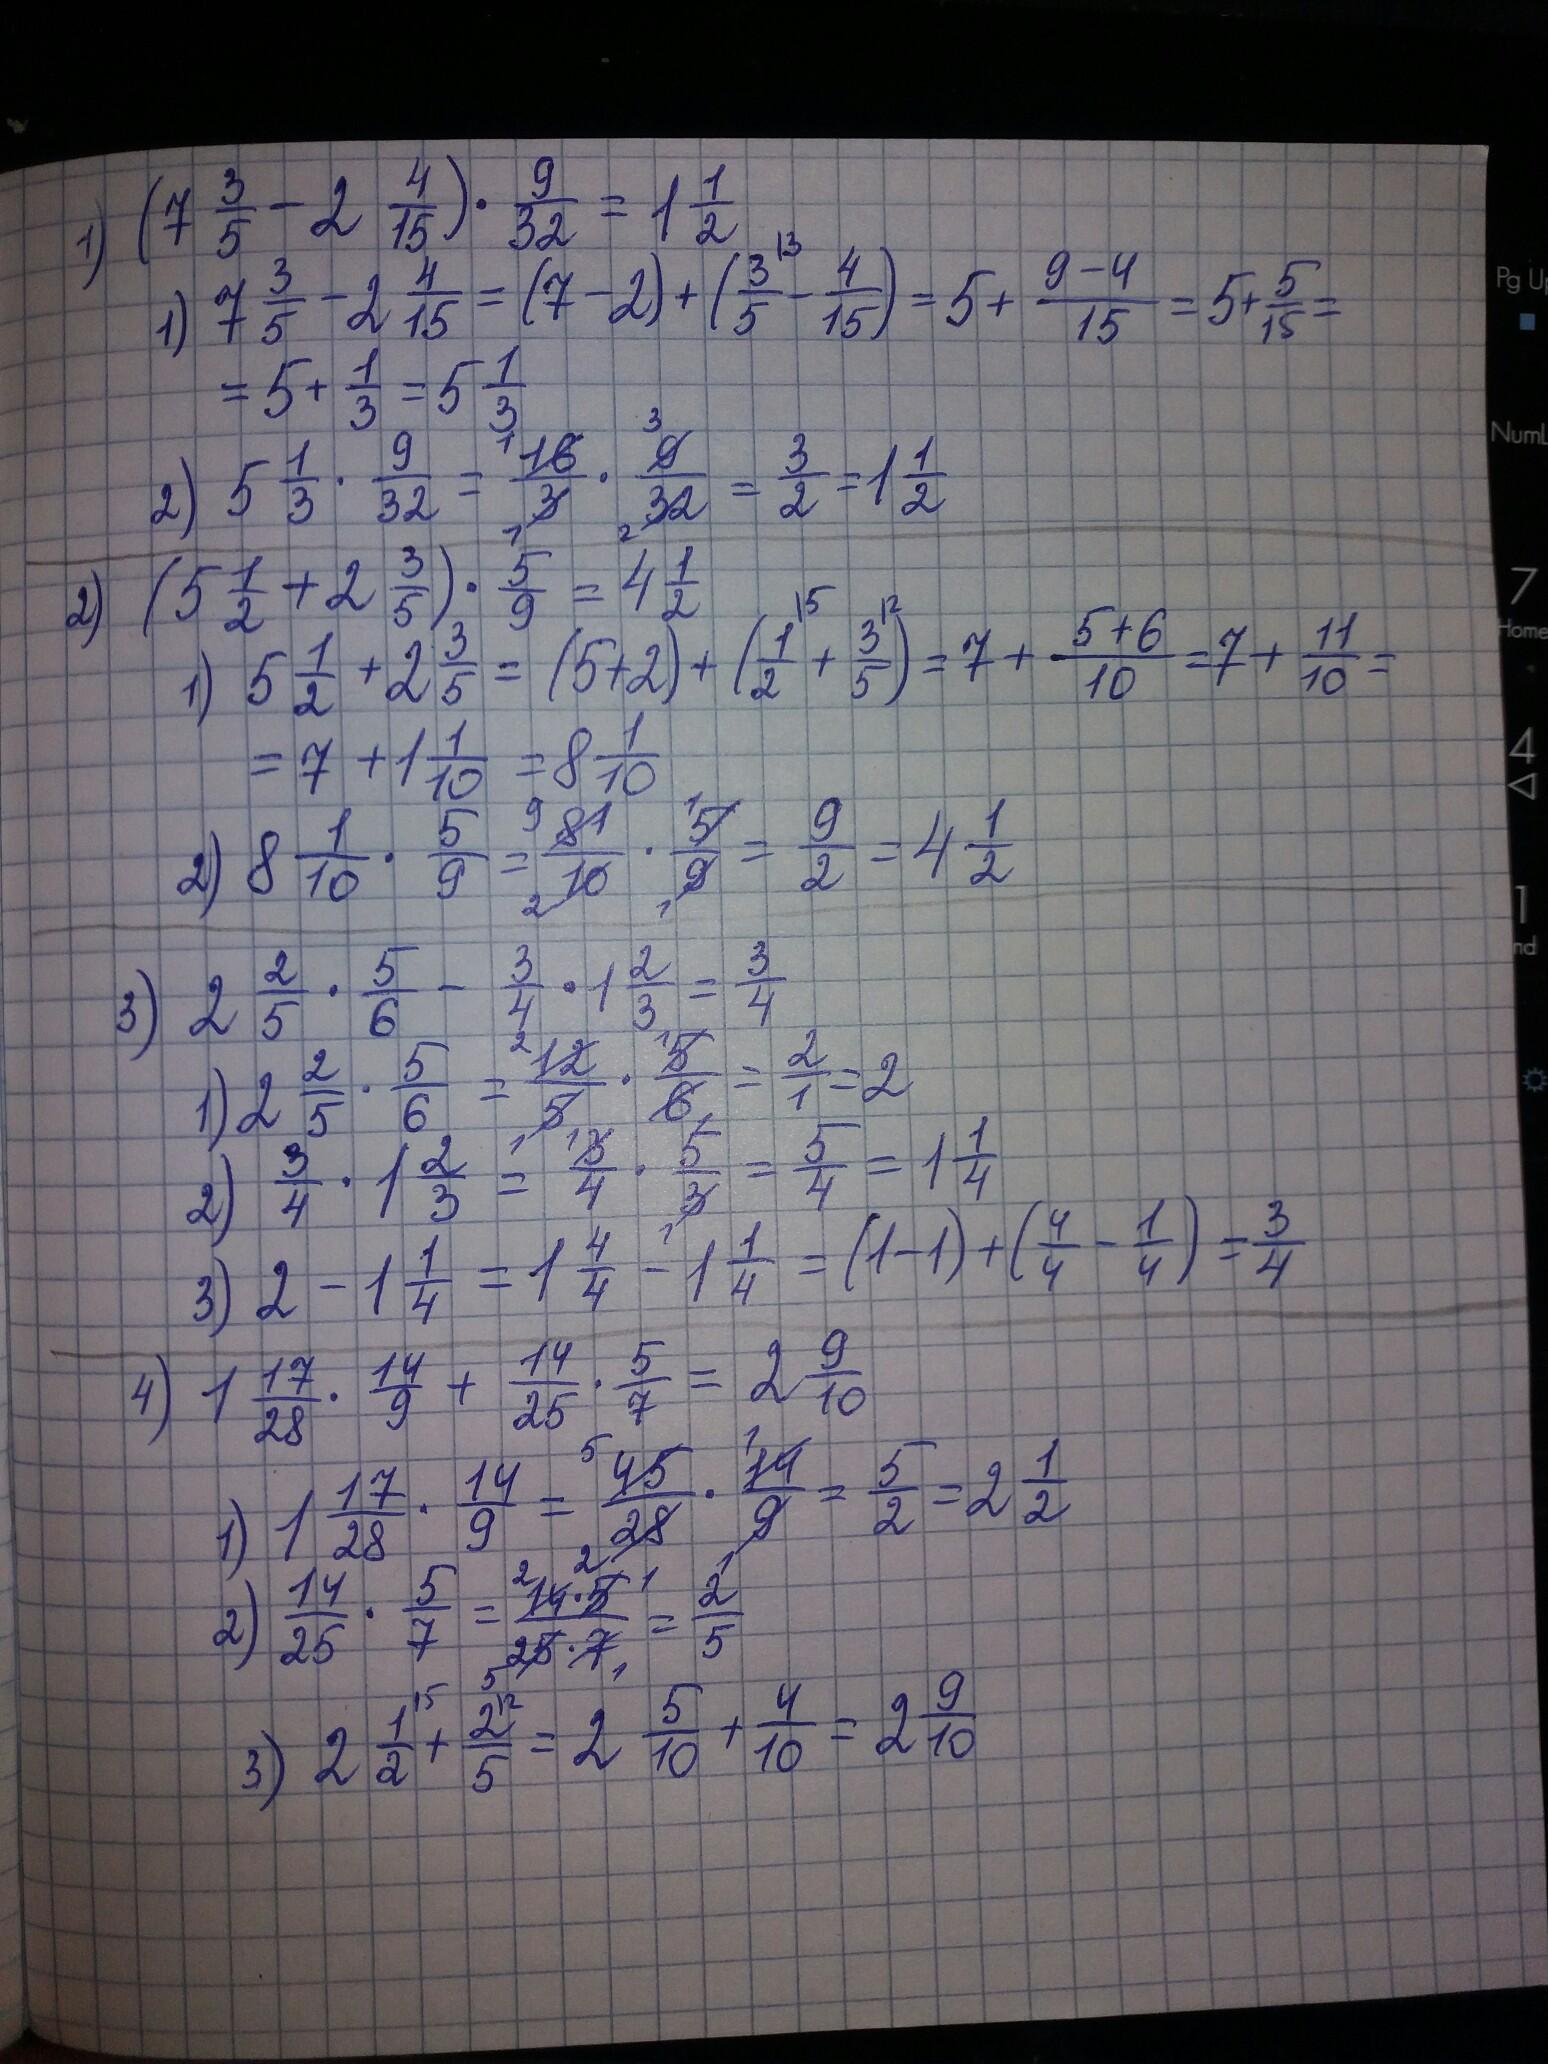 1) (7 3/5 - 2 4/15) · 9/32 = 1 1/2
1) 7 3/5 - 2 4/15 = (7 - 2) + (3/5 |3 - 4/15) = 5 + (9 - 4)/15 = 5 + 5/15 =
= 5 + 1/3 = 5 1/3
2) 5 1/3 · 9/32 = 16/3 · 9/32 = 3/2 = 1 1/2
2) (5 1/2 + 2 3/5) · 5/9 = 4 1/2
1) 5 1/2 + 2 3/5 = (5+2) + (1/2 |5 + 3/5 |2) = 7 + (5+6)/10 = 7 + 11/10 =
= 7 + 1 1/10 = 8 1/10
2) 8 1/10 · 5/9 = 81/10 · 5/9 = 9/2 = 4 1/2
3) 2 2/5 · 5/6 - 3/4 · 1 2/3 = 3/4
1) 2 2/5 · 5/6 = 12/5 · 5/6 = 2/1 = 2
2) 3/4 · 1 2/3 = 3/4 · 5/3 = 5/4 = 1 1/4
3) 2 - 1 1/4 = 1 4/4 - 1 1/4 = (1-1) + (4/4 - 1/4) = 3/4
4) 1 17/28 · 14/9 + 14/25 · 5/7 = 2 9/10
1) 1 17/28 · 14/9 = 45/28 · 14/9 = 5/2 = 2 1/2
2) 14/25 · 5/7 = (14·5)/(25·7) = 2/5
3) 2 1/2 |5 + 2/5 |2 = 2 5/10 + 4/10 = 2 9/10
Pg Up
NumL
7
Home
4
1
nd